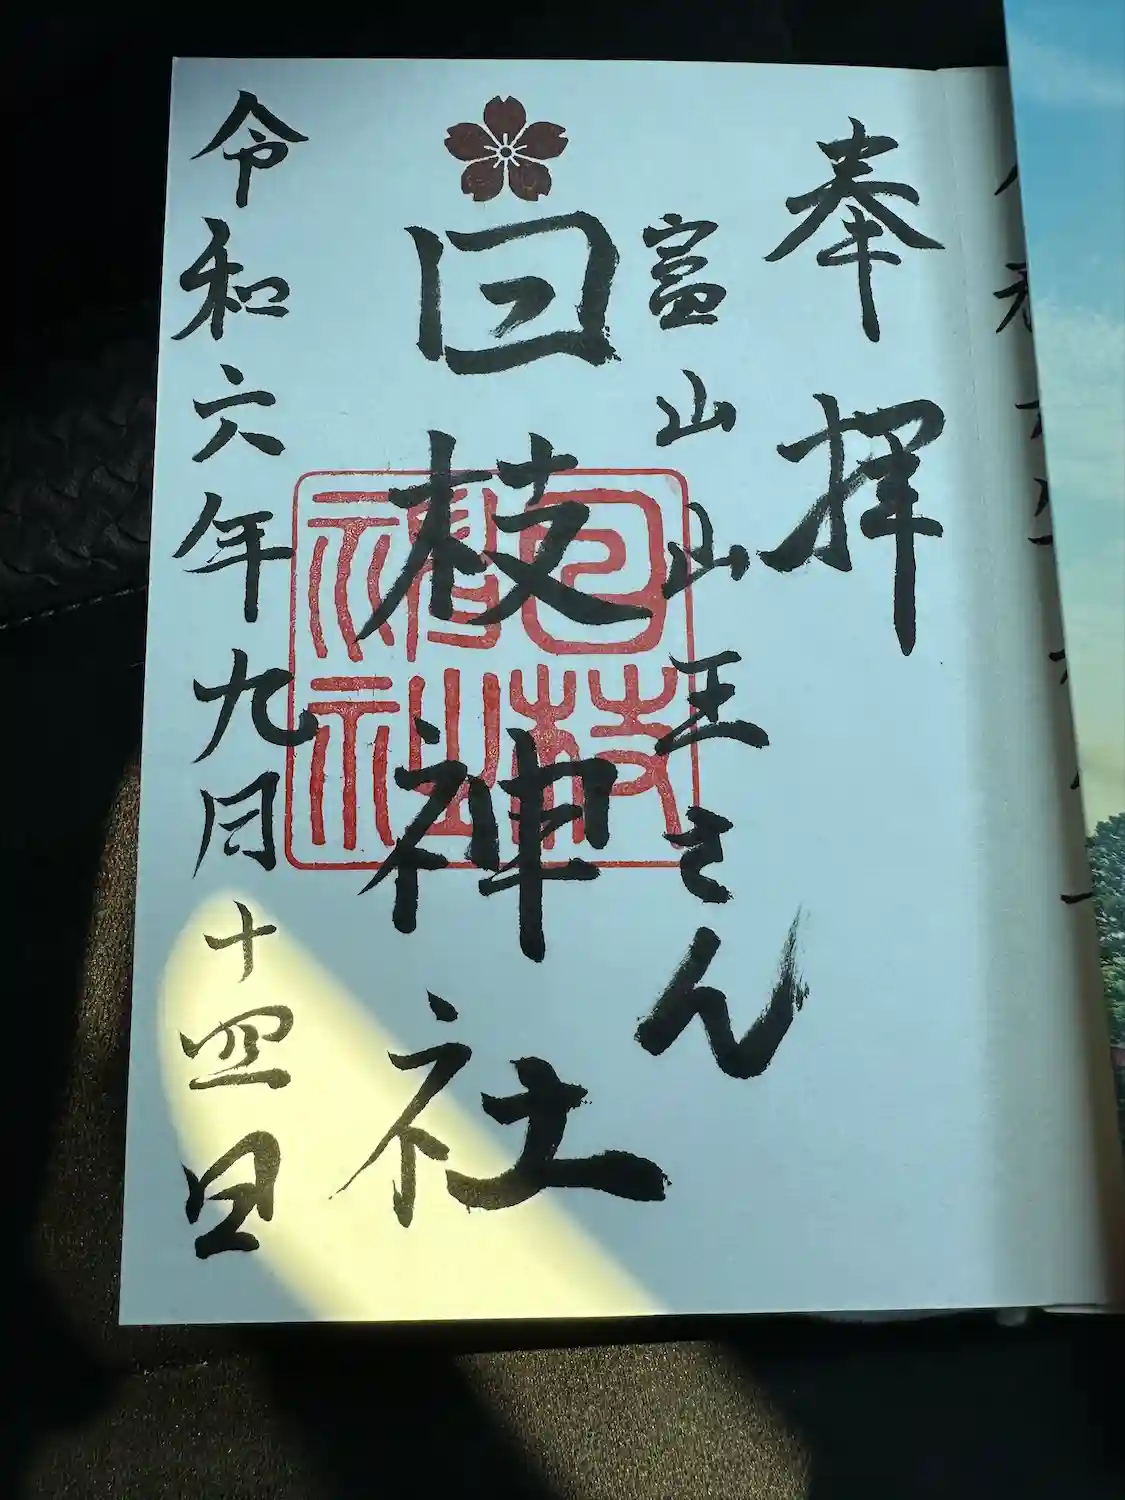 奉拝
富山山王さん
日枝神社
日枝神社
令和六年九月十四日